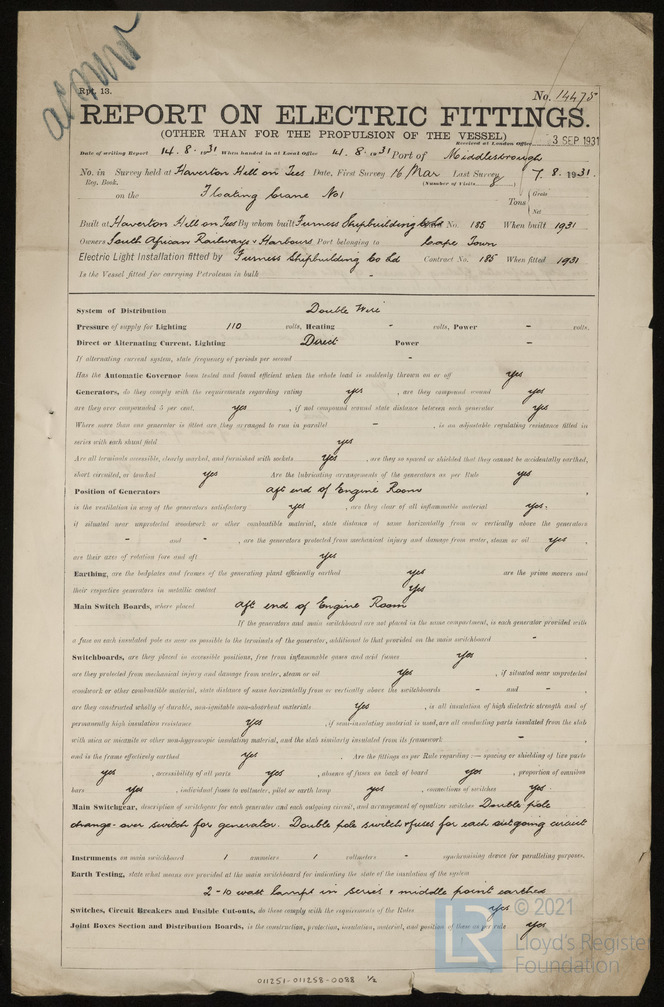 Rpt. 13.
No. 14475
REPORT ON ELECTRIC FITTINGS.
(OTHER THAN FOR THE PROPULSION OF THE VESSEL)
Received at London Office 3 SEP 1931
Date of writing Report 14.8.1931 When handed in at Local Office 14.8.1931 Port of Middlesbrough
No. in Survey held at Haverton Hill on Tees Date, First Survey 16 Mar Last Survey 7.8.1931.
Reg. Book. (Number of Visits 8
on the Floating Crane No1 Tons { Gross
Net
Built at Haverton Hill on Tees By whom built Furness Shipbuilding Co Ld No. 185 When built 1931
Owners South African Railways & Harbours Port belonging to Cape Town
Electric Light Installation fitted by Furness Shipbuilding Co Ld Contract No. 185 When fitted 1931
Is the Vessel fitted for carrying Petroleum in bulk -
System of Distribution Double Wire
Pressure of supply for Lighting 110 volts, Heating - volts, Power - volts.
Direct or Alternating Current, Lighting Direct Power -
If alternating current system, state frequency of periods per second -
Has the Automatic Governor been tested and found efficient when the whole load is suddenly thrown on or off yes
Generators, do they comply with the requirements regarding rating yes, are they compound wound yes
are they over compounded 5 per cent. yes, if not compound wound state distance between each generator yes
Where more than one generator is fitted are they arranged to run in parallel -, is an adjustable regulating resistance fitted in
series with each shunt field yes
Are all terminals accessible, clearly marked, and furnished with sockets yes, are they so spaced or shielded that they cannot be accidentally earthed,
short circuited, or touched yes Are the lubricating arrangements of the generators as per Rule yes
Position of Generators aft end of Engine Room,
is the ventilation in way of the generators satisfactory yes, are they clear of all inflammable material yes.,
if situated near unprotected woodwork or other combustible material, state distance of same horizontally from or vertically above the generators
- and -, are the generators protected from mechanical injury and damage from water, steam or oil yes,
are their axes of rotation fore and aft yes
Earthing, are the bedplates and frames of the generating plant efficiently earthed yes are the prime movers and
their respective generators in metallic contact yes
Main Switch Boards, where placed aft end of Engine Room
If the generators and main switchboard are not placed in the same compartment, is each generator provided with
a fuse on each insulated pole as near as possible to the terminals of the generator, additional to that provided on the main switchboard -
Switchboards, are they placed in accessible positions, free from inflammable gases and acid fumes yes,
are they protected from mechanical injury and damage from water, steam or oil yes, if situated near unprotected
woodwork or other combustible material, state distance of same horizontally from or vertically above the switchboards - and -,
are they constructed wholly of durable, non-ignitable non-absorbent materials yes, is all insulation of high dielectric strength and of
permanently high insulation resistance yes, if semi-insulating material is used, are all conducting parts insulated from the slab
with mica or micanite or other non-hygroscopic insulating material, and the slab similarly insulated from its framework -,
and is the frame effectively earthed yes. Are the fittings as per Rule regarding:— spacing or shielding of live parts
yes, accessibility of all parts yes, absence of fuses on back of board yes, proportion of omnibus
bars yes, individual fuses to voltmeter, pilot or earth lamp yes, connections of switches yes.
Main Switchgear, description of switchgear for each generator and each outgoing circuit, and arrangement of equalizer switches Double pole
change-over switch for generator. Double pole switch & fuses for each outgoing circuit
Instruments on main switchboard 1 ammeters 1 voltmeters - synchronising device for paralleling purposes.
Earth Testing, state what means are provided at the main switchboard for indicating the state of the insulation of the system
2-10 watt lamps in series & middle point earthed
Switches, Circuit Breakers and Fusible Cut-outs, do these comply with the requirements of the Rules yes
Joint Boxes Section and Distribution Boards, is the construction, protection, insulation, material, and position of these as per rule yes
LR © 2021
Lloyd's Register
Foundation
011251-011258-0088 1/2